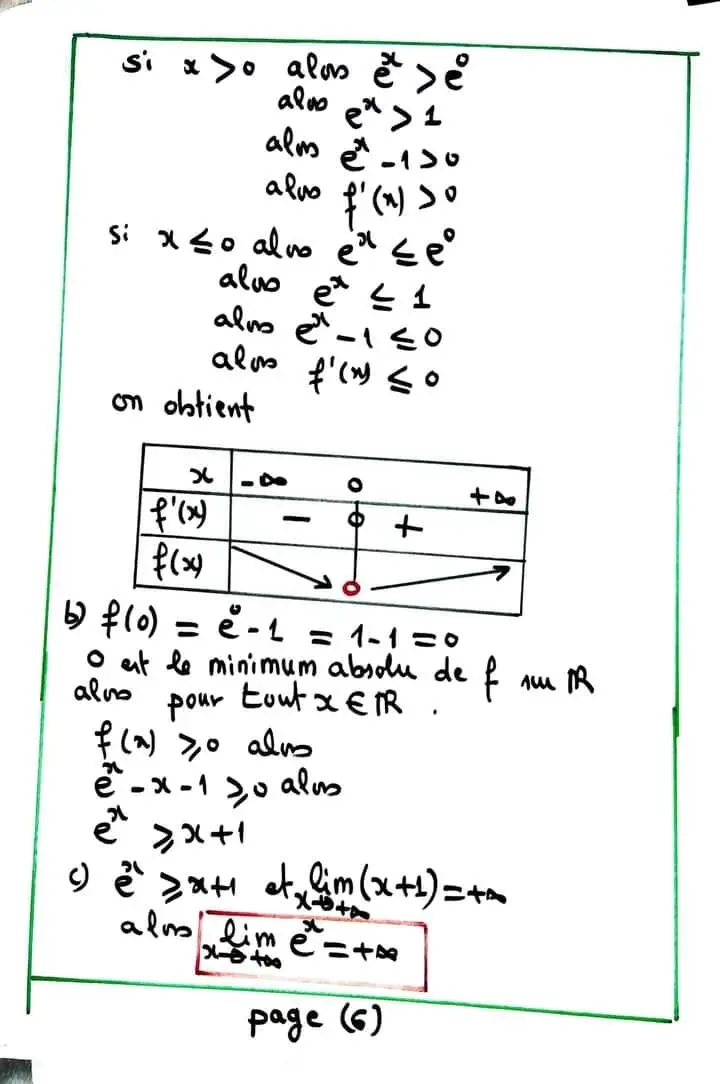 si x > 0 alors e^x > e^0
alors e^x > 1
alors e^x - 1 > 0
alors f'(x) > 0
si x ≤ 0 alors e^x ≤ e^0
alors e^x ≤ 1
alors e^x - 1 ≤ 0
alors f'(x) ≤ 0
on obtient
x -∞ 0 +∞
f'(x) - 0 +
f(x) 0
b) f(0) = e^0 - 1 = 1 - 1 = 0
0 est le minimum absolu de f sur ℝ
alors pour tout x ∈ ℝ .
f(x) ≥ 0 alors
e^x - x - 1 ≥ 0 alors
e^x ≥ x + 1
c) e^x ≥ x+1 et lim x→+∞ (x+1) = +∞
alors lim x→+∞ e^x = +∞
page (6)